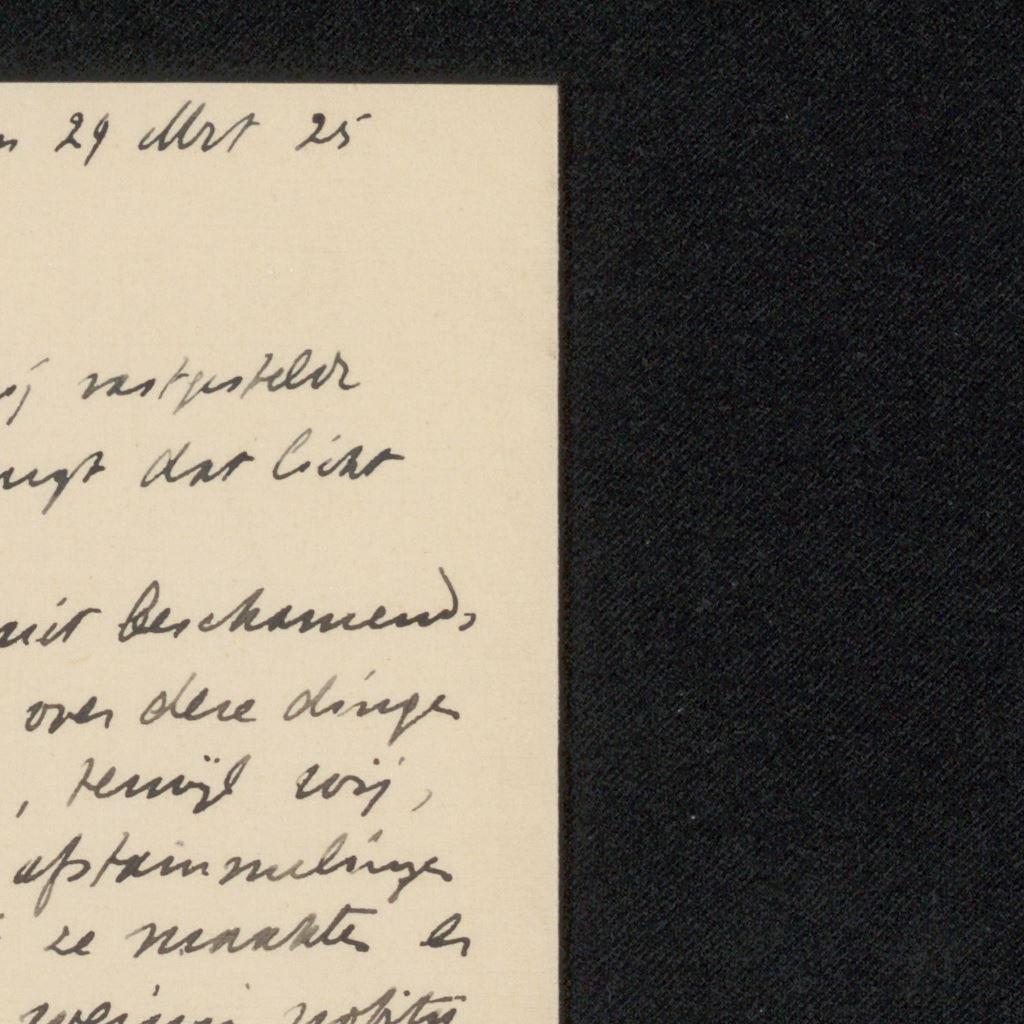 29 Mrt 25
vastgestelde
dat licht
beschamends
over deze dingen
, terwijl wij,
afstammelingen
ze maakten er
weinig